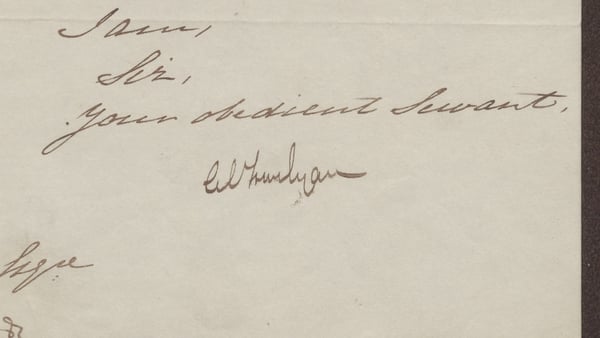 I am,
Sir,
Your obedient Servant,
C E Trevelyan
Esqre